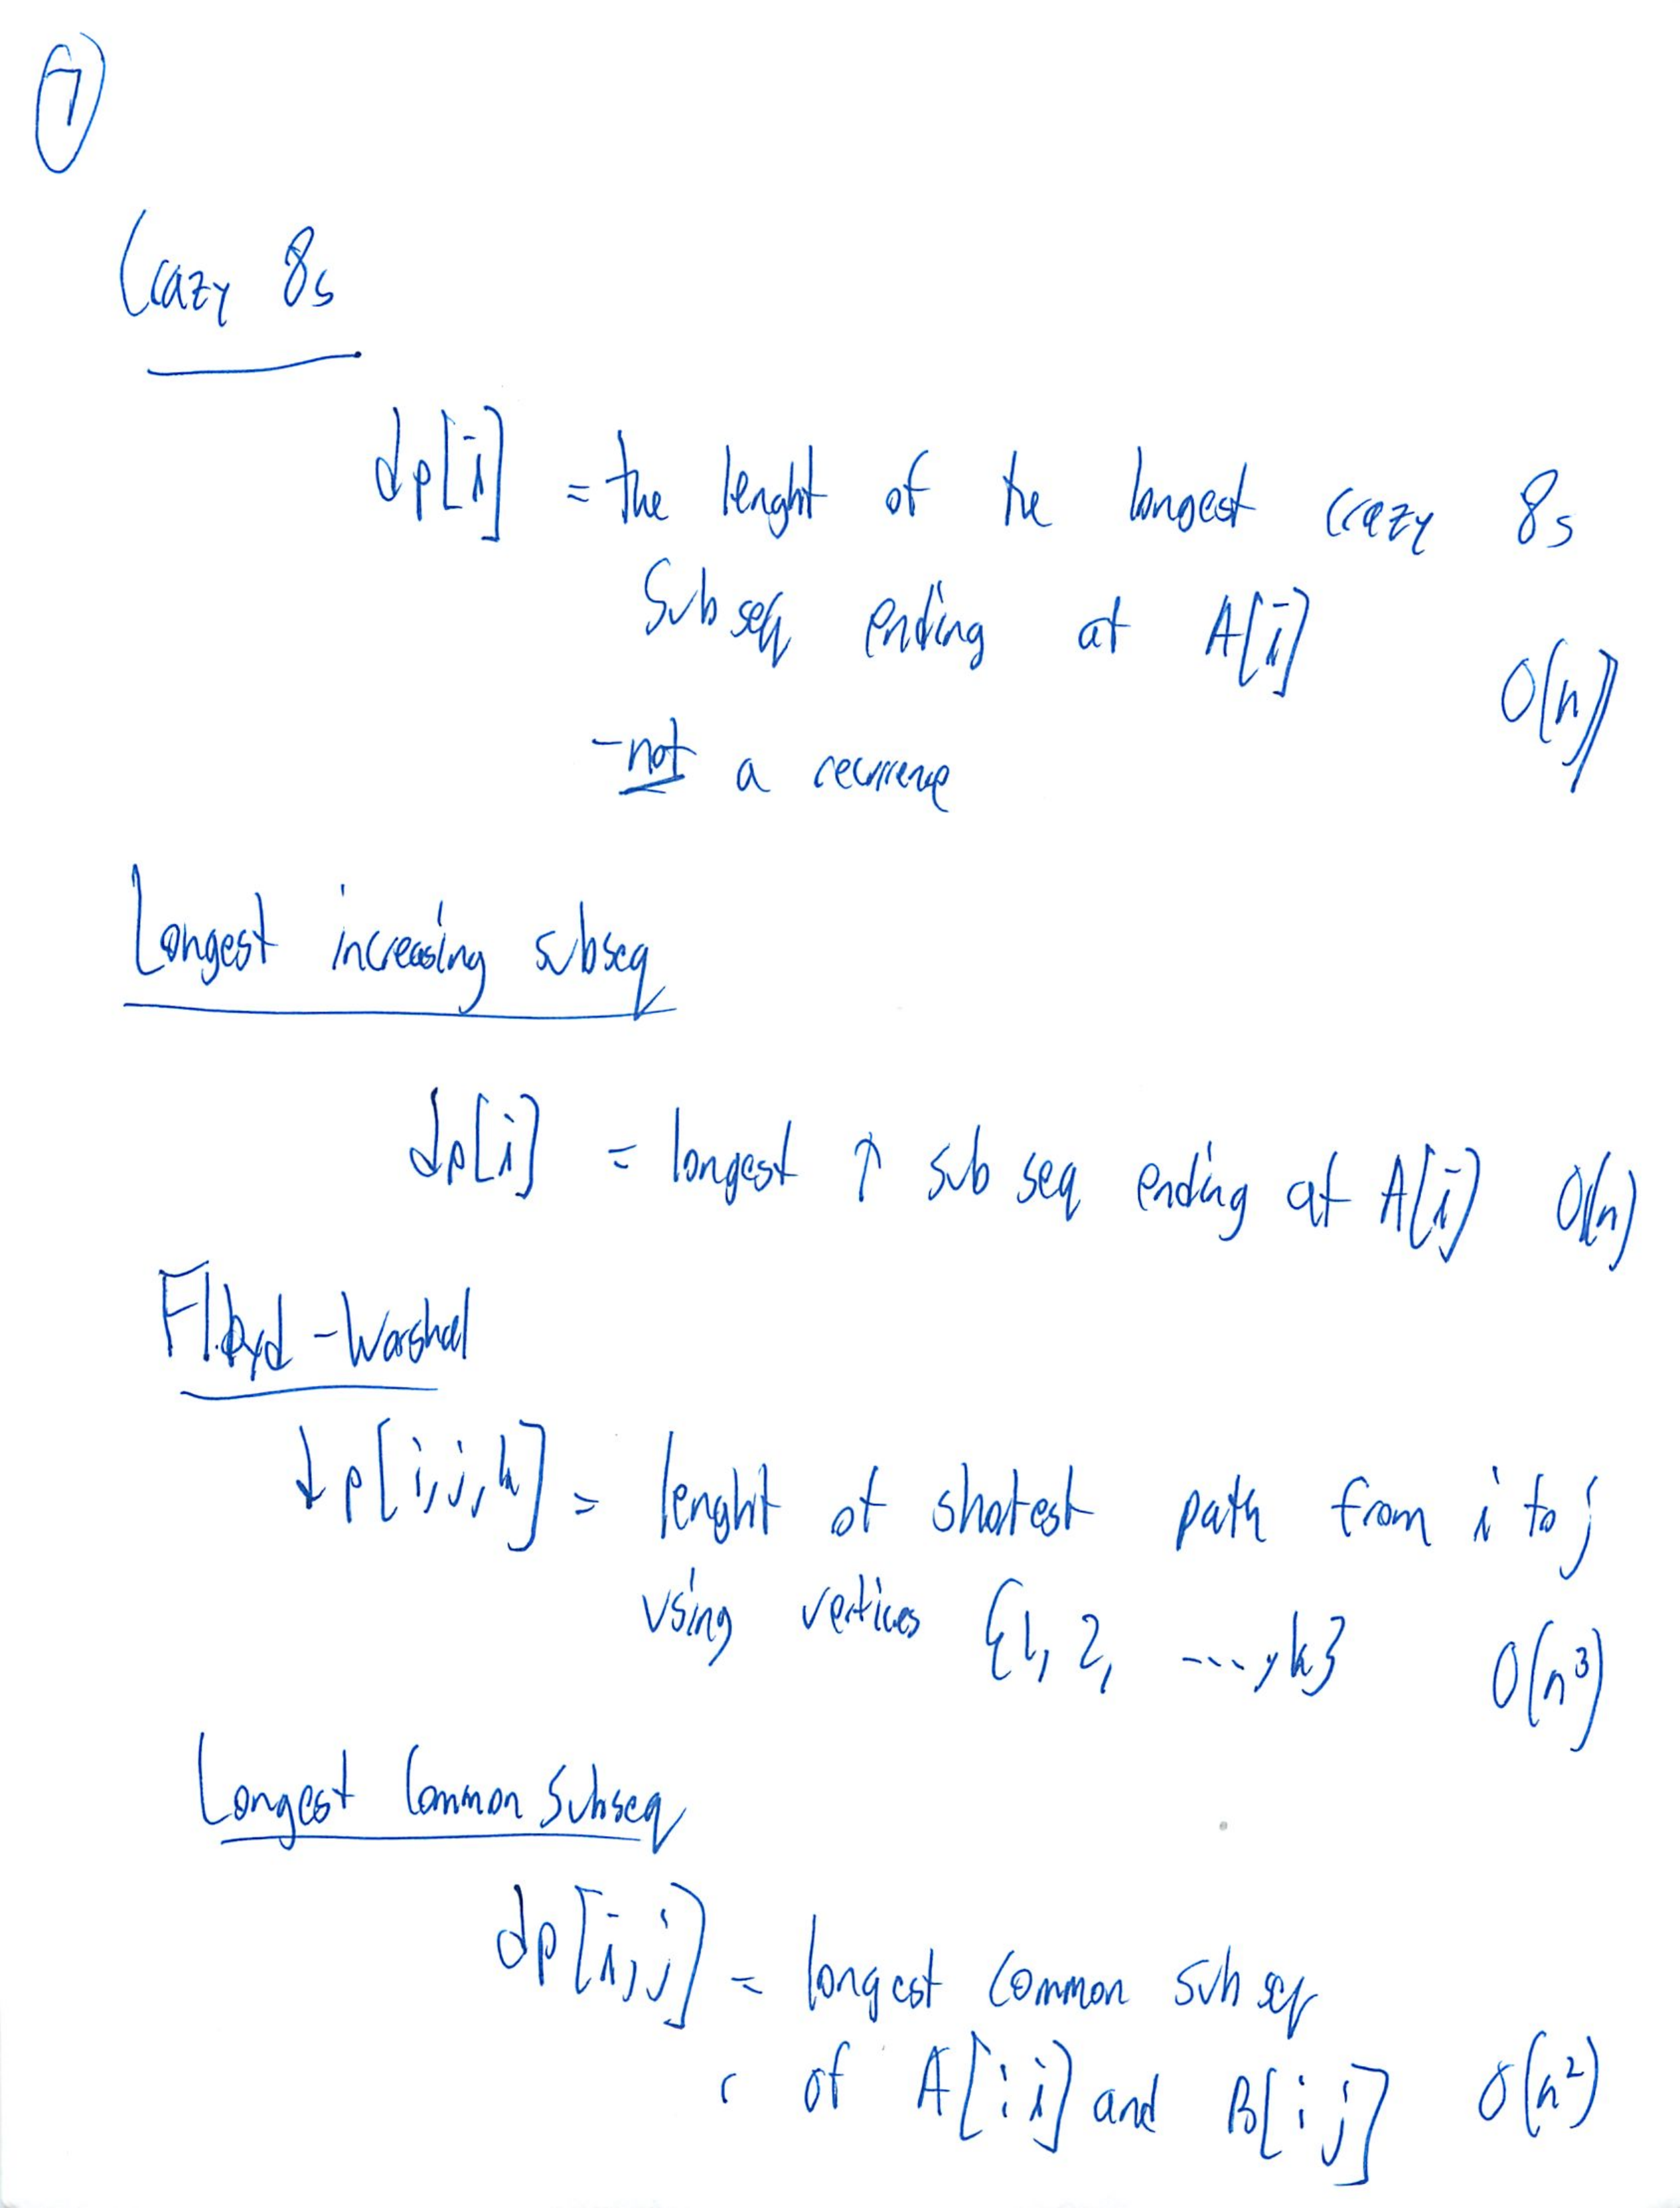 7
Crazy 8s
dp[i] = the lenght of the longest crazy 8s
Subseq ending at A[i]
O(n)
- not a recurrence
Longest increasing subseq
dp[i] = longest ↑ sub seq ending at A[i] O(n)
Floyd - Warshal
dp[i,j,k] = lenght of shortest path from i to j
using vertices {1, 2, ..., k}
O(n³)
Longest Common Subseq
dp[i,j] = longest common subseq
of A[:i] and B[:j] O(n²)